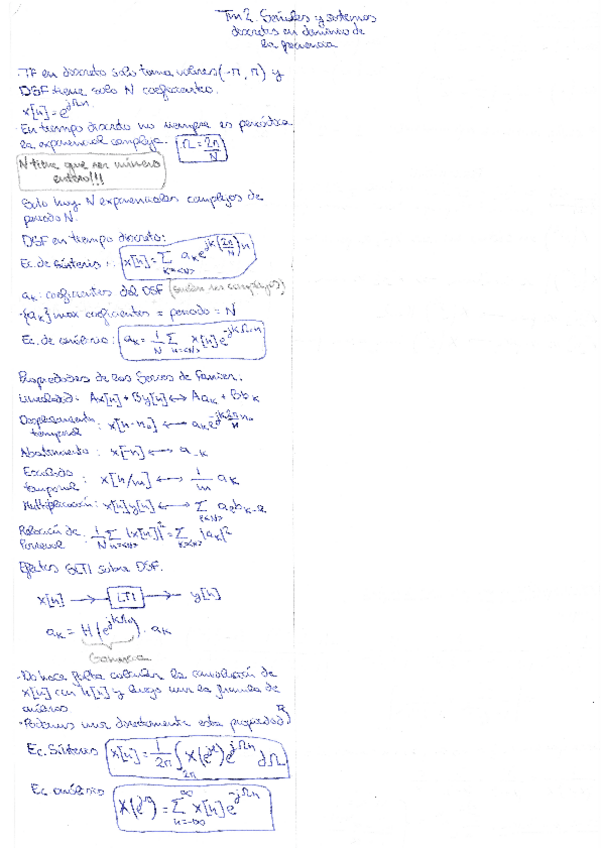 Tm 2. Señales y sistemas
discretos en dominio de
la frecuencia
·TF en discreto solo toma valores (-π, π) y
DSF tiene solo N coeficientes.
x[n] = e^{jΩn}
En tiempo discreto no siempre es periódica
la exponencial compleja. Ω = 2π/N
N tiene que ser número
entero!!!
Solo hay N exponenciales complejas de
periodo N.
DSF en tiempo discreto:
Ec. de Síntesis: x[n] = Σ_{k=<N>} a_k e^{jk(2π/N)n}
a_k: coeficientes del DSF (suelen ser complejos)
·{a_k} max coeficientes = periodo = N
Ec. de análisis: a_k = 1/N Σ_{n=<N>} x[n] e^{-jkΩ₀n}
Propiedades de las Series de Fourier:
Linealidad: Ax[n] + By[n] ↔ Aa_k + Bb_k
Desplazamiento
temporal : x[n-n₀] ↔ a_k e^{-jk(2π/N)n₀}
Abatimiento : x[-n] ↔ a_{-k}
Escalado
temporal : x[n/m] ↔ 1/m a_k
Multiplicación: x[n]y[n] ↔ Σ_{l=<N>} a_l b_{k-l}
Relación de
Parseval : 1/N Σ_{n=<N>} |x[n]|² = Σ_{k=<N>} |a_k|²
Efectos SLTI sobre DSF.
x[n] → LTI → y[n]
a_k = H(e^{jkΩ₀}) · a_k
Ganancia
·No hace falta calcular la convolución de
x[n] con h[n] y luego usar la fórmula de
análisis
·Podemos usar directamente esta propiedad
Ec. Síntesis x[n] = 1/2π ∫_{2π} X(e^{jΩ}) e^{jΩn} dΩ
Ec análisis X(e^{jΩ}) = Σ_{n=-∞}^{∞} x[n] e^{-jΩn}